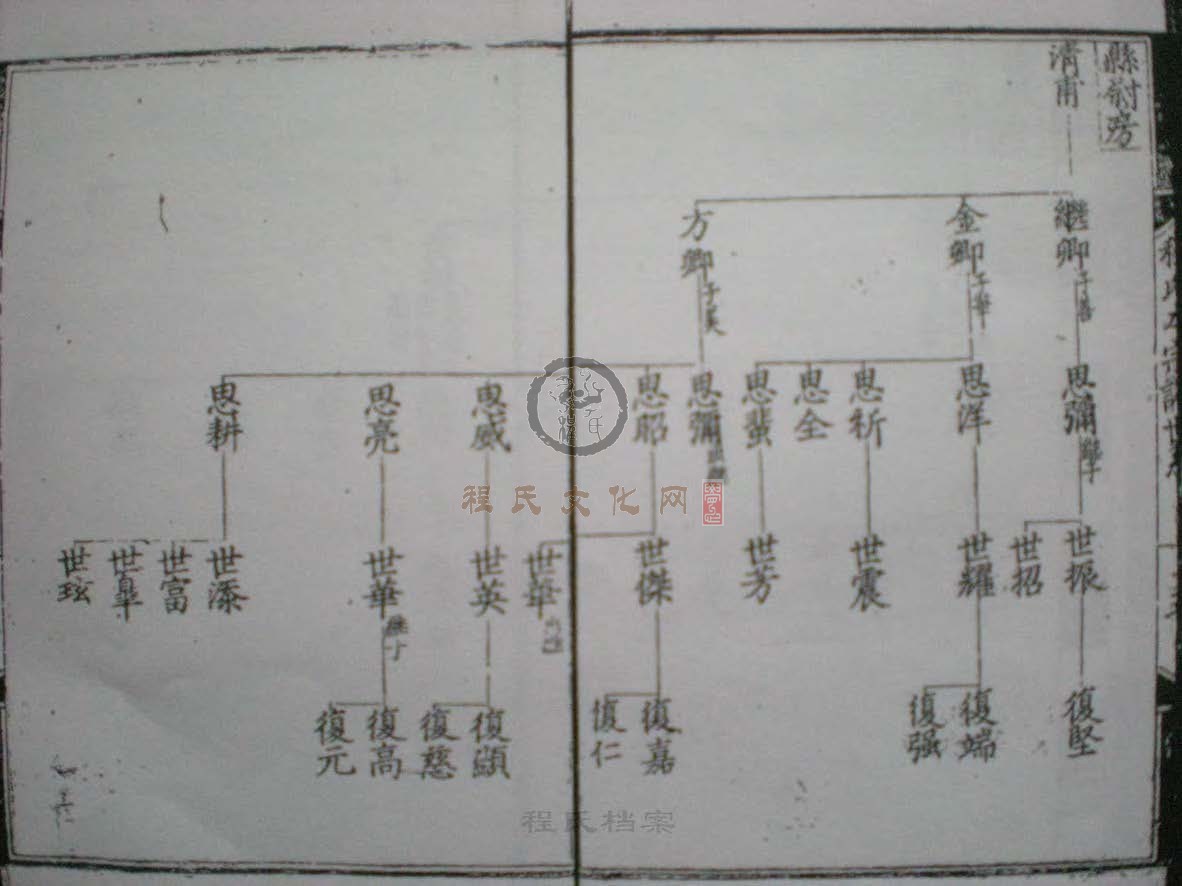 縣尉房
清甫
繼卿 子善
金卿 子華
方卿
思彌 繼子
思洋
思祈
思全
思蜚
思彌
思昭
思威
思亮
思耕
世振
世招
世耀
世震
世芳
世傑
世華
世英
世華 繼丁
世添
世富
世皐
世玹
復堅
復端
復强
復嘉
復仁
復顯
復慈
復高
復元
程氏文化网
程氏档案